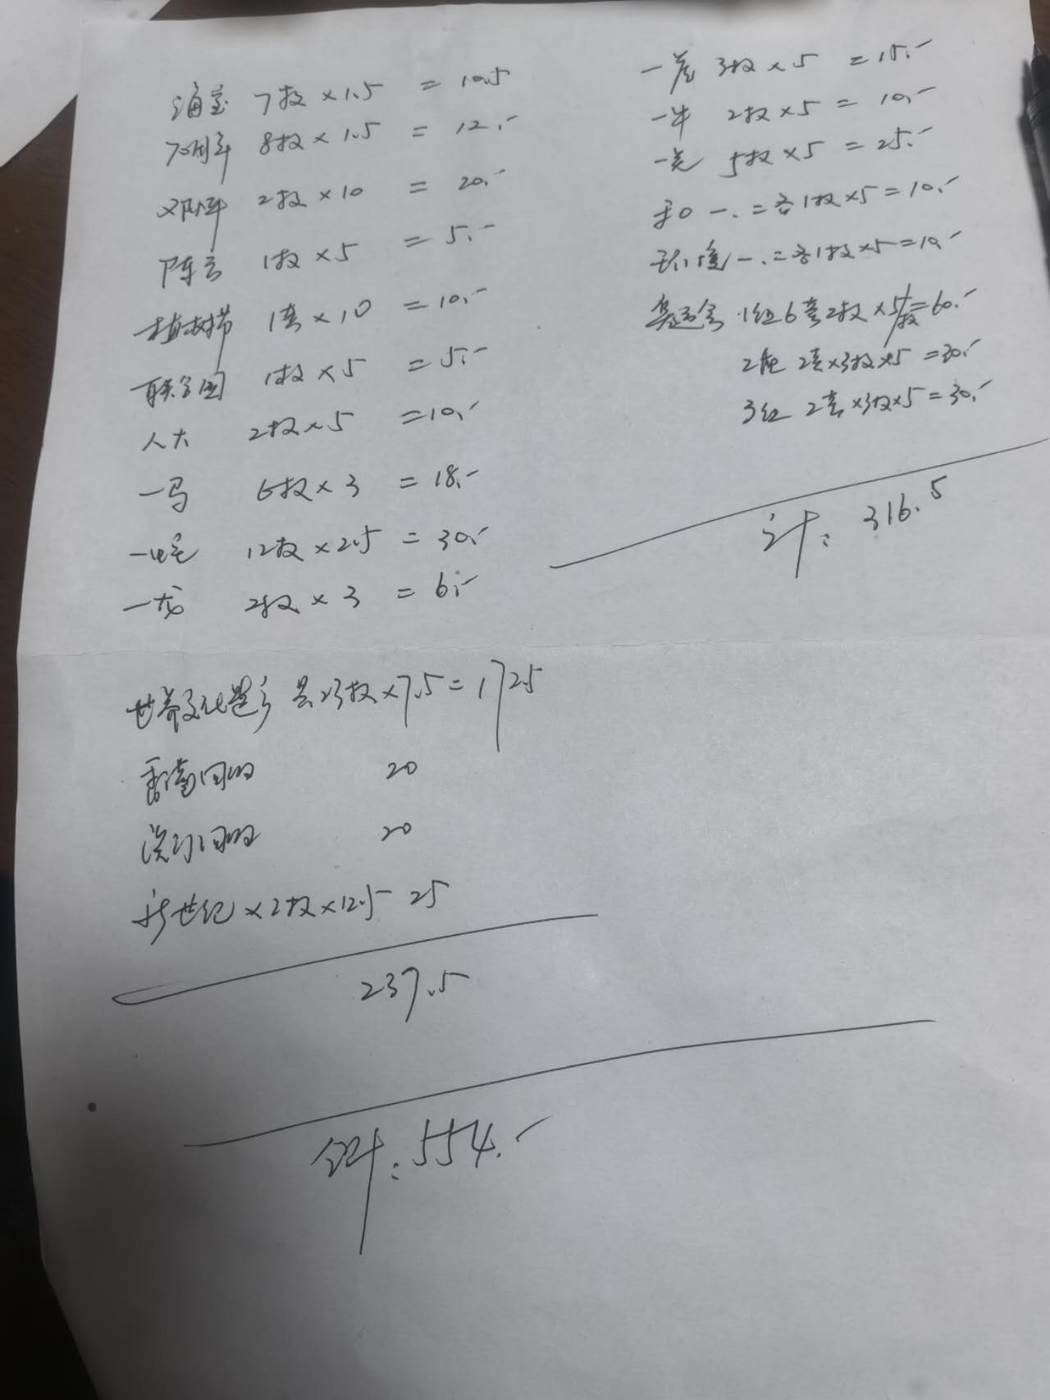 海宝 7枚×1.5 = 10.5
70周年 8枚×1.5 = 12.-
邓 2枚×10 = 20.-
陈云 1枚×5 = 5.-
植树节 1套×10 = 10.-
联合国 1枚×5 = 5.-
人大 2枚×5 = 10.-
一马 6枚×3 = 18.-
一蛇 12枚×2.5 = 30.-
一龙 2枚×3 = 6.-
一虎 3枚×5 = 15.-
一牛 2枚×5 = 10.-
一羊 5枚×5 = 25.-
和 一.二各1枚×5=10.-
环 一.二各1枚×5=10.-
奥运会 1组6套2枚×5/枚=60.-
2组 2套×3枚×5 =30.-
3组 2套×3枚×5=30.-
计: 316.5
世界文化遗产 共23枚×7.5=172.5
香港回归 20
澳门回归 20
新世纪×2枚×12.5 25
237.5
合计: 554.-